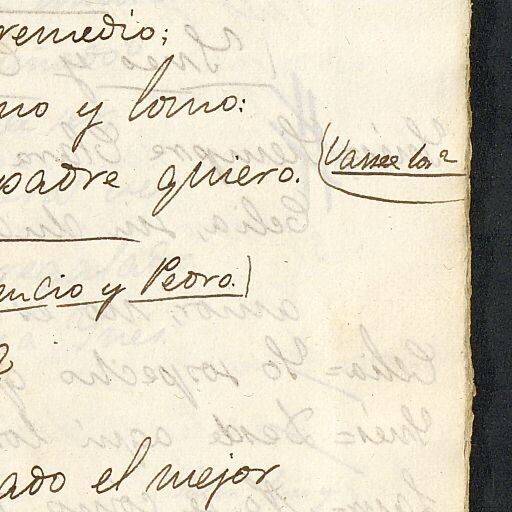 remedio;
mo y lomo:
padre quiero. (Vanse los 2
encio y Pedro.)
ado el mejor